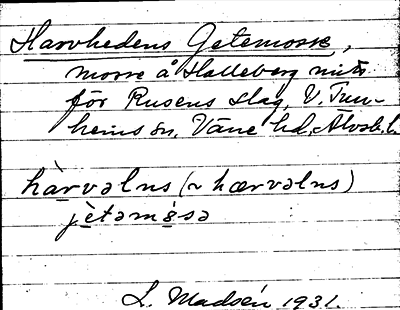 Harvhedens Getemosse,
mosse å Halleberg mitt
för Rusens slag, V. Tun-
hems sn, Väne hd, Älvsb. l.
hàrvəlns (~ hærvəlns)
jètəmòsə
L. Madsén 1931.